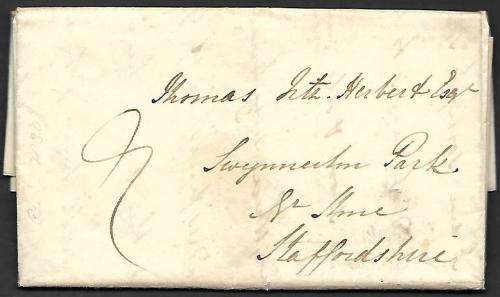 Thomas Fitz. Herbert Esqr
Swynnerton Park
Nr Stone
Staffordshire